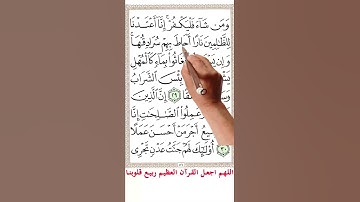 وَمَن شَآءَ فَلْيَكْفُرْ إِنَّآ أَعْتَدْنَا
لِلظَّٰلِمِينَ نَارًا أَحَاطَ بِهِمْ سُرَادِقُهَا
وَإِن بِمَآءٍ كَٱلْمُهْلِ
بِئْسَ ٱلشَّرَابُ
٢٩ إِنَّ ٱلَّذِينَ
عَمِلُوا۟ ٱلصَّٰلِحَٰتِ إِنَّا
أَجْرَ مَنْ أَحْسَنَ عَمَلًا
٣٠ أُو۟لَٰٓئِكَ لَهُمْ جَنَّٰتُ عَدْنٍ تَجْرِى
اللهم اجعل القرآن العظيم ربيع قلوبنا